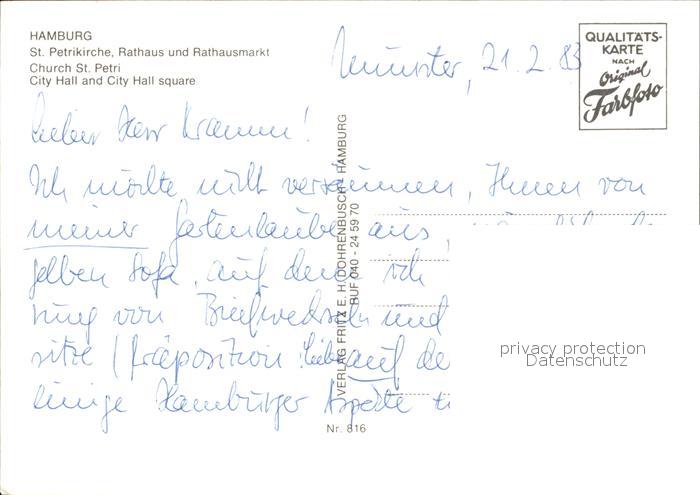 HAMBURG
St. Petrikirche, Rathaus und Rathausmarkt
Church St. Petri
City Hall and City Hall square
QUALITÄTS-
KARTE
NACH
Original
Farbfoto
Münster, 21. 2. 83
Lieber Herr Kramm!
Ich möchte nicht versäumen, Ihnen von
meiner Gartenlaube aus
gelben Sofa, auf dem ich
von Briefwechseln und
sitze (Präposition: auf de
einige Hamburger Aspekte
VERLAG FRITZ E. H. DOHRENBUSCH · HAMBURG
RUF 040 - 24 59 70
Nr. 816
privacy protection
Datenschutz